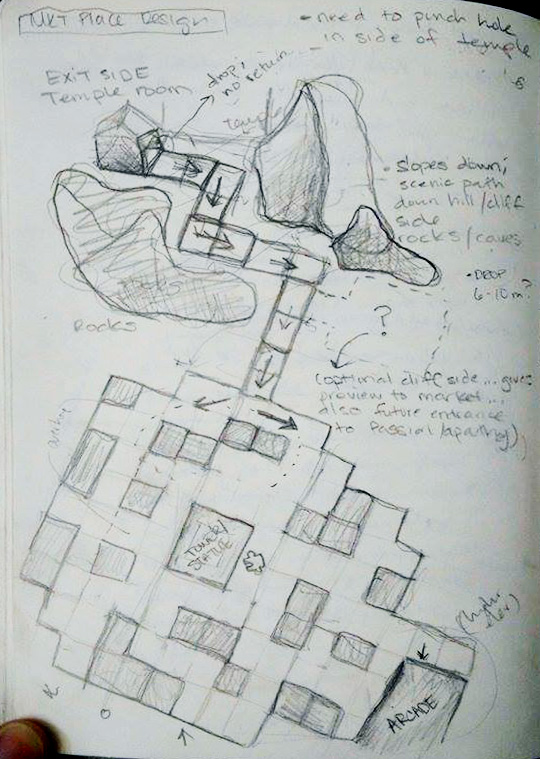 MKT Place Design
- need to punch hole
in side of temple
EXIT SIDE
Temple room
drop;
no return
• Slopes down;
scenic path
down hill/cliff
side
rocks/caves
• DROP
6-10m?
rocks
Rocks
?
(optional cliff side... gives
preview to market...
also future entrance
to
TOWER/
STATUE
ARCADE